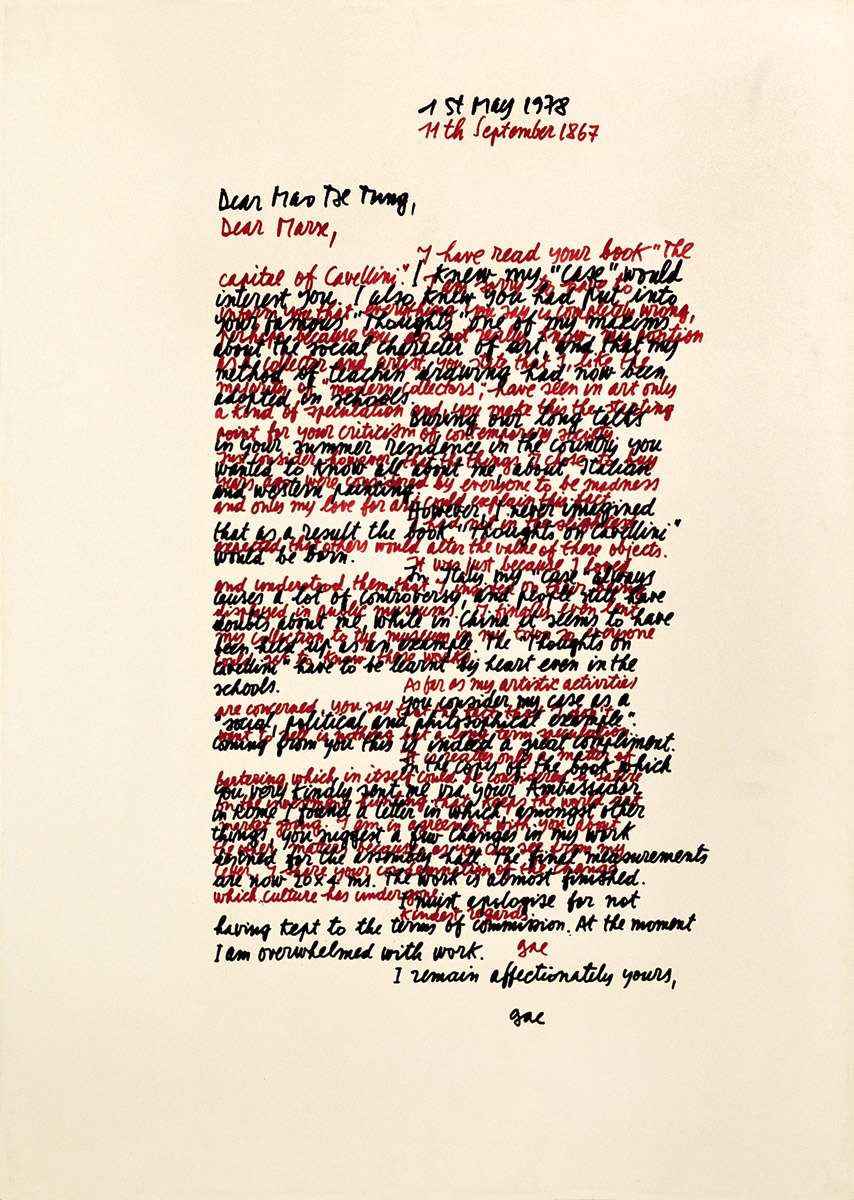 1st May 1978
11th September 1867
Dear Mao Tse Tung,
Dear Marx,
I have read your book "The
capital of Cavellini".
I knew my "case" would
I am sorry to have to
interest you. I also knew you had put into
inform you that everything you say is completely wrong,
your famous "Thoughts" one of my maxims
perhaps because you do not really know my position
about the social character of art, and that my
art collector and artist. you state that I, like the
method of teachin drawing had now been
majority of "modern collectors", have seen in art only
adopted in schools
a kind of speculation and you make this the starting
During our long talks
point for your criticism of contemporary society
in your summer residence in the country you
Just consider, however that the things I chose
wanted to know all about me, about Italian
years ago were considered by everyone to be madness
and western painting.
and only my love for art could explain this fact.
However, I never imagined
I had not in the slightest
that as a result the book "Thoughts on Cavellini"
expected that others would alter the value of these objects.
would be born.
It was just because I loved
In Italy my "case" always
and understood them that I
causes a lot of controversy, and people still have
displayed in public museums. I finally even lent
doubts about me, while in China it seems to have
my collection to the museum in my town so everyone
been held up as an example. The "Thoughts on
could get to know these works.
Cavellini" have to be learnt by heart even in the
schools.
As far as my artistic activities
are concerned, you say that
you consider my case as a
"social, political and philosophical example".
want to sell is nothing but a long term speculation
coming from you this is indeed a great compliment.
In the copies of the book which
bartering which in itself could be considered a satire
you very kindly sent me via your Ambassador
on the investment hunting that keeps the world art
in Rome I found a letter in which, amongst other
market going. I am in agreement with you about
things, you suggest a few changes in my work
the other matters because, as you can see from my
destined for the assembly hall. The final measurements
letter, I share your condemnation of the change
are now 20x4 ms. The work is almost finished.
which culture has undergone.
I must apologise for not
Kindest regards
having kept to the terms of commission. At the moment
I am overwhelmed with work.
gae
I remain affectionately yours,
gae